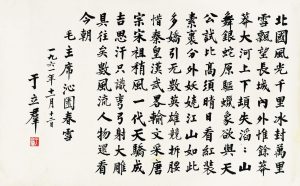 北國風光千里冰封萬里
雪飄望長城內外惟餘莽
莽大河上下頓失滔〻山
舞銀蛇原驅蠟象欲與天
公試比高須晴日看紅裝
素裹分外妖嬈江山如此
多嬌引无數英雄競折腰
惜秦皇漢武略輸文采唐
宗宋祖稍風一代天驕成
吉思汗只識彎弓射大雕
俱往矣數風流人物還看
今朝
毛主席沁園春雪
一九六一年十二月十二日
于立羣